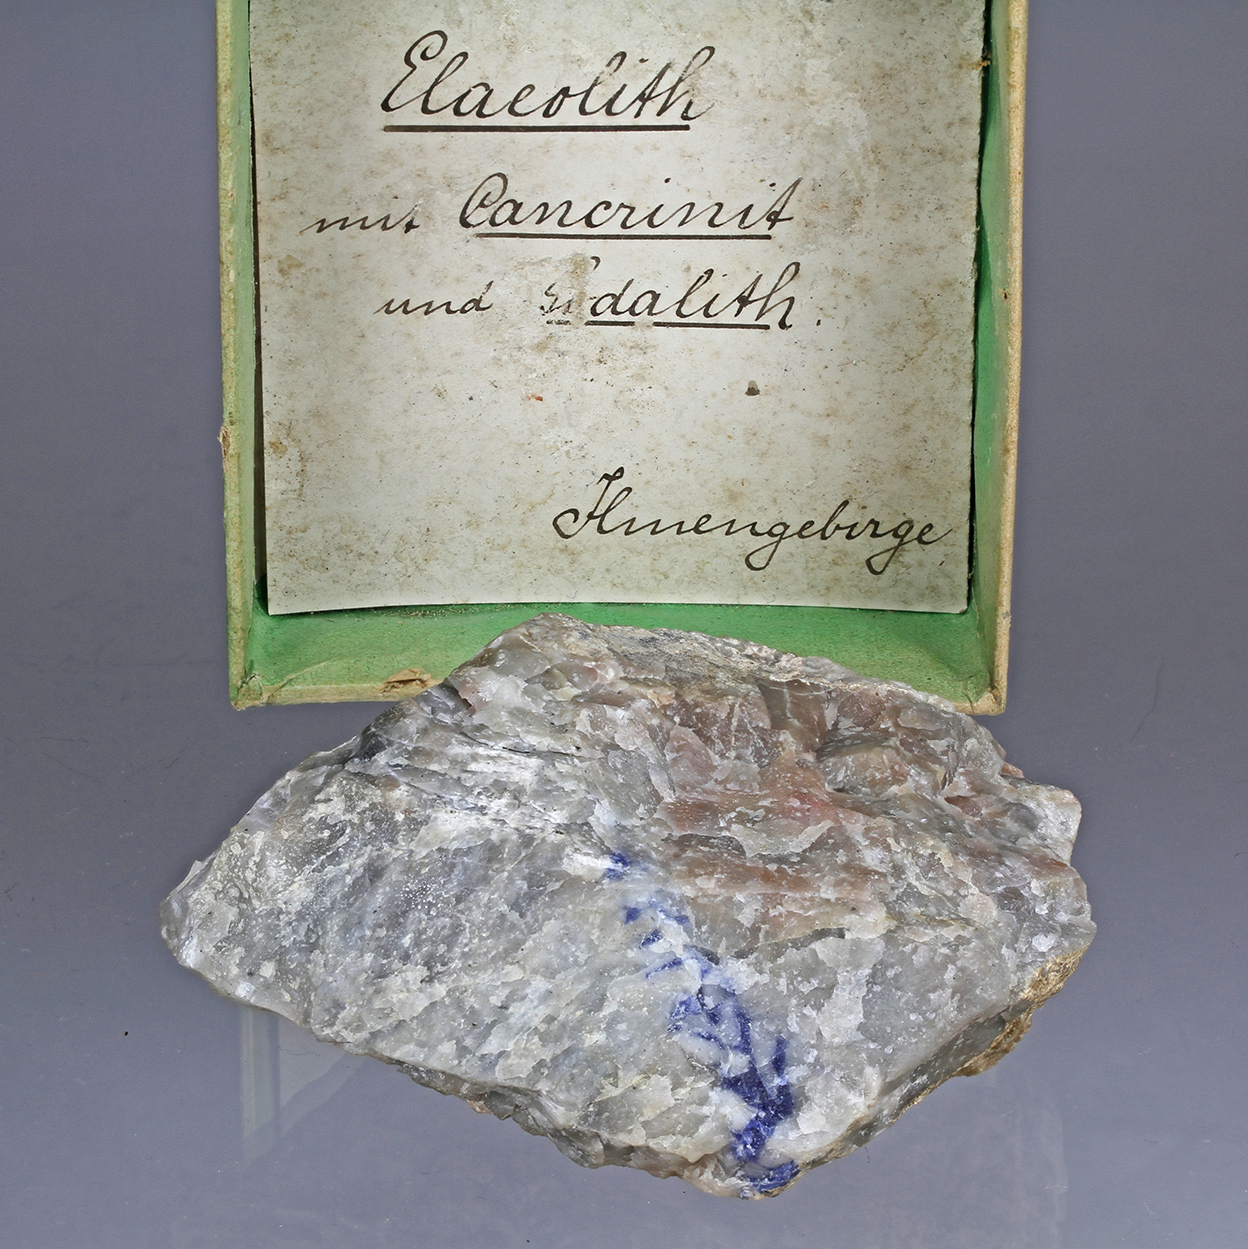 Elaeolith
mit Cancrinit
und Sodalith.
Ilmengebirge